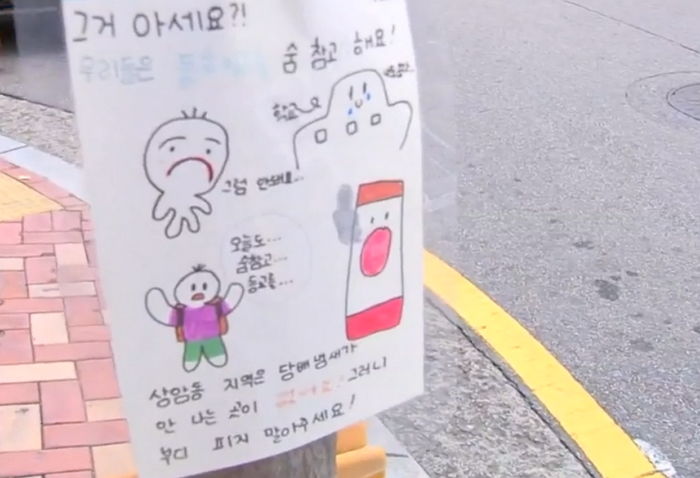 그거 아세요?!
우리들은 숨 참고 해요!
학교
그럼 안돼...
오늘도...
숨참고...
등교를...
상암동 지역은 담배냄새가
안 나는 곳이 없어요! 그러니
부디 피지 말아주세요!